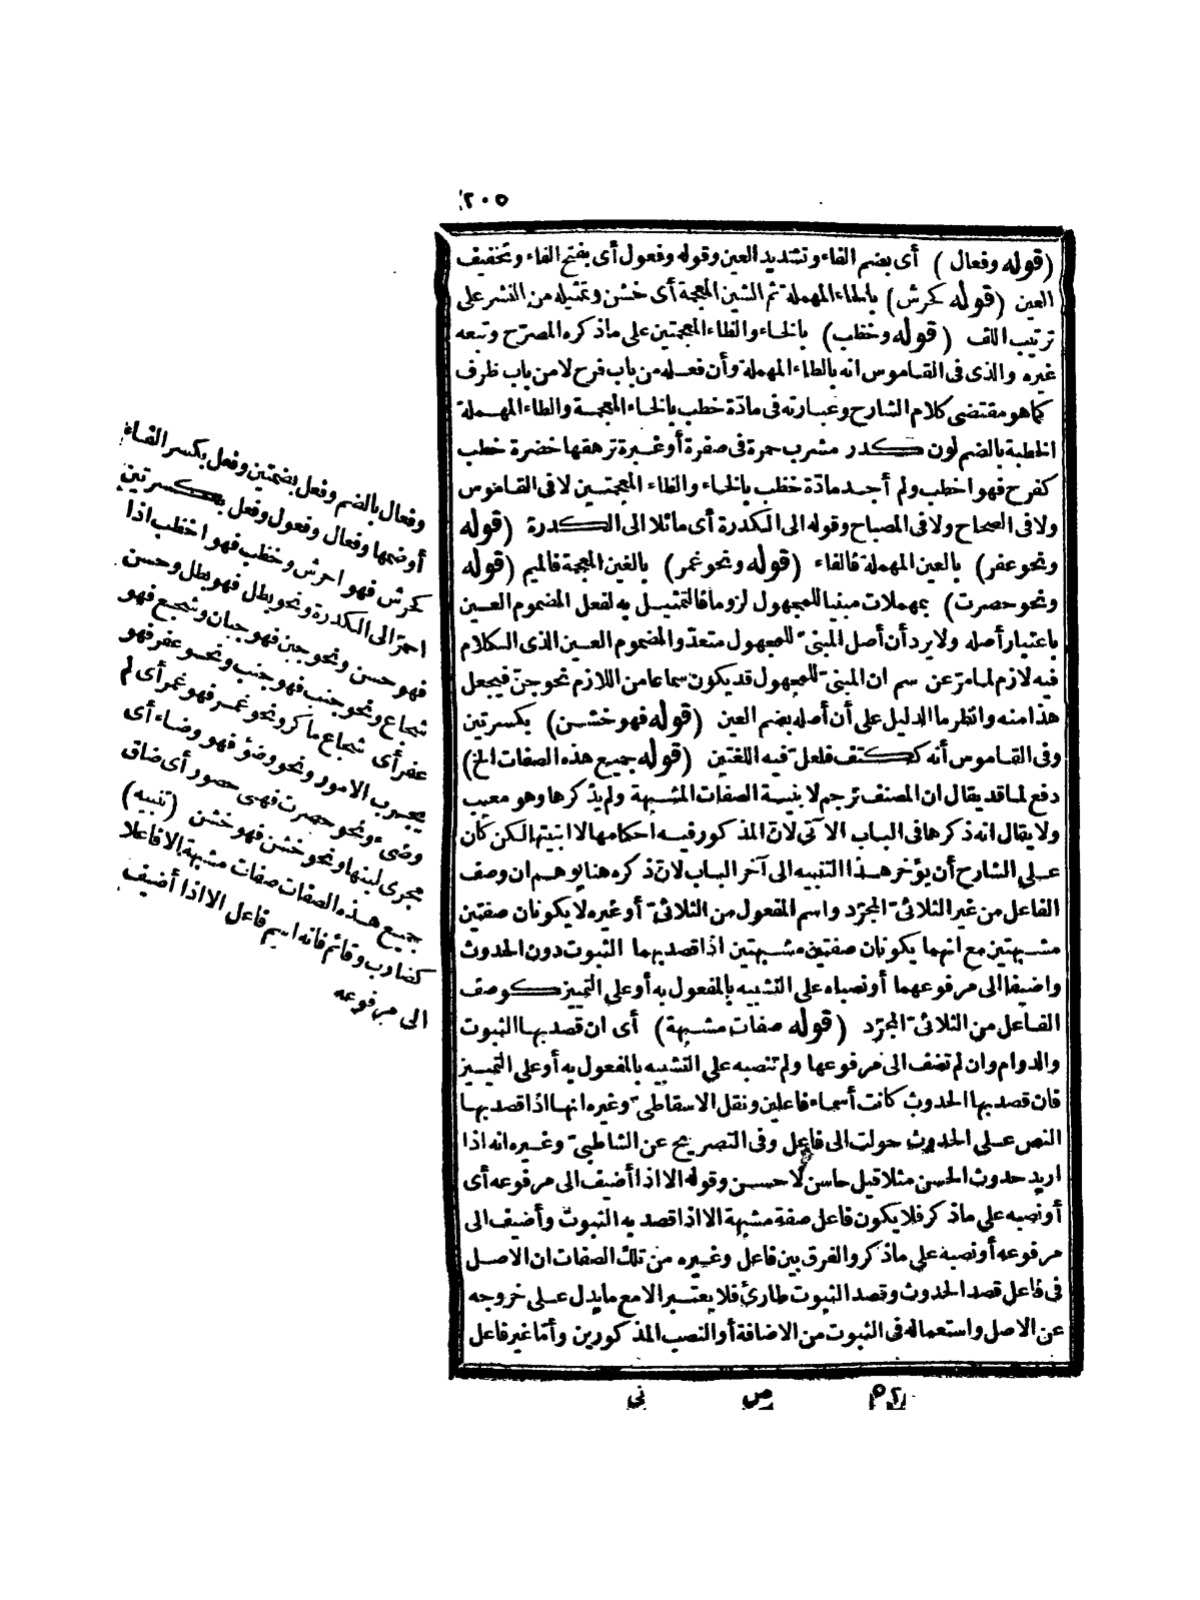 ٢٠٥
(قوله وفعال) أى بضم الفاء وتشديد العين وقوله وفعول أى بفتح الفاء وتخفيف
العين (قوله كحرش) بالحاء المهملة ثم الشين المعجمة أى خشن وتمثيله من النشر على
ترتيب اللف (قوله وخظب) بالخاء والظاء المعجمتين على ماذكره المصرّح وتبعه
غيره والذى فى القاموس انه بالطاء المهملة وأن فعله من باب فرح لا من باب ظرف
كما هو مقتضى كلام الشارح وعبارته فى مادّة خطب بالخاء المعجمة والطاء المهملة
الخطبة بالضم لون كدر مشرب حمرة فى صفرة أو غبرة ترهقها خضرة خطب
كفرح فهو اخطب ولم أجد مادّة خظب بالخاء والظاء المعجمتين لا فى القاموس
ولا فى الصحاح ولا فى المصباح وقوله الى الكدرة أى مائلا الى الكدرة (قوله
ونحو عفر) بالعين المهملة فالفاء (قوله ونحو غمر) بالغين المعجمة فالميم (قوله
ونحو حصرت) بمهملات مبنيا للمجهول لزوما فالتمثيل به لفعل المضموم العين
باعتبار أصله ولا يرد أن أصل المبنىّ للمجهول متعدّ والمضموم العين الذى الكلام
فيه لازم لما مرّ عن سم ان المبنىّ للمجهول قد يكون سماعا من اللازم نحو جنّ فيجعل
هذا منه وانظر ما الدليل على أن أصله بضم العين (قوله فهو خشن) بكسرتين
وفى القاموس أنه ككتف فلعلّ فيه اللغتين (قوله جميع هذه الصفات الخ)
دفع لما قد يقال ان المصنف ترجم لابنية الصفات المشبهة ولم يذكرها وهو معيب
ولا يقال انه ذكرها فى الباب الآتى لانّ المذكور فيه أحكامها لا ابنيتها لكن كان
على الشارح أن يؤخر هذا التنبيه الى آخر الباب لانّ ذكره هنا يوهم ان وصف
الفاعل من غير الثلاثىّ المجرّد واسم المفعول من الثلاثىّ أو غيره لا يكونان صفتين
مشبهتين مع انهما يكونان صفتين مشبهتين اذا قصد بهما الثبوت دون الحدوث
واضيفا الى مرفوعهما أو نصباه على التشبيه بالمفعول به أو على التمييز كوصف
الفاعل من الثلاثىّ المجرّد (قوله صفات مشبهة) أى ان قصد بها الثبوت
والدوام وان لم تضف الى مرفوعها ولم تنصبه على التشبيه بالمفعول به أو على التمييز
فان قصد بها الحدوث كانت أسماء فاعلين ونقل الاسقاطىّ وغيره انها اذا قصد بها
النص على الحدوث حولت الى فاعل وفى التصريح عن الشاطبىّ وغيره انه اذا
اريد حدوث الحسن مثلا قيل حاسن لا حسن وقوله الا اذا أضيف الى مرفوعه أى
أو نصبه على ماذكر فلا يكون فاعل صفة مشبهة الا اذا قصد به الثبوت وأضيف الى
مرفوعه أو نصبه على ماذكر والفرق بين فاعل وغيره من تلك الصفات ان الاصل
فى فاعل قصد الحدوث وقصد الثبوت طارئ فلا يعتبر الا مع ما يدل على خروجه
عن الاصل واستعماله فى الثبوت من الاضافة أو النصب المذكورين وأمّا غير فاعل
وفعال بالضم وفعل بضمتين وفعل بكسر الفاء
أو ضمها وفعال وفعول وفعل بكسرتين
كحرش فهو احرش وخظب فهو اخظب اذا
احمرّ الى الكدرة ونحو بطل فهو بطل وحسن
فهو حسن ونحو جبن فهو جبان وشجع فهو
شجاع ونحو جنب فهو جنب ونحو عفر فهو
عفر أى شجاع ماكر ونحو غمر فهو غمر أى لم
يجرب الامور ونحو وضؤ فهو وضاء أى
وضىء ونحو حصرت فهى حصور أى ضاق
مجرى لبنها ونحو خشن فهو خشن (تنبيه)
جميع هذه الصفات صفات مشبهة الا فاعلا
كضارب وقائم فانه اسم فاعل الا اذا أضيف
الى مرفوعه
٥٢ ص نى